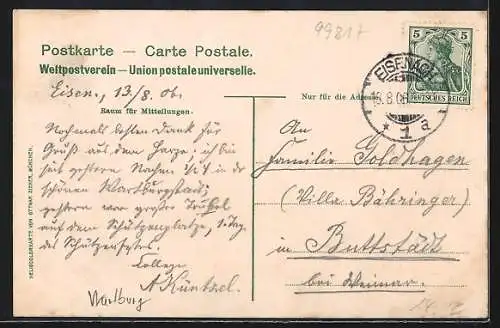 99817
Postkarte — Carte Postale.
Weltpostverein — Union postale universelle.
Eisen., 13/8. 06.
Raum für Mitteilungen.
Nur für die Adresse
5 5
DEUTSCHES REICH
EISENACH
13.8.06
* 1 a
Nochmals besten Dank für
Gruß aus dem Harze; ich bin
seit gestern Nachm. in der
schönen Wartburgstadt;
gestern war großer Trubel
auf dem Schützenplatze, 1. Tag
des Schützenfestes.
College
A. Küntzel.
Wartburg
An
Familie Goldhagen
(Villa Bähringer)
in Buttstädt
bei Weimar.
HELIOCOLORKARTE VON OTTMAR ZIEHER, MÜNCHEN.